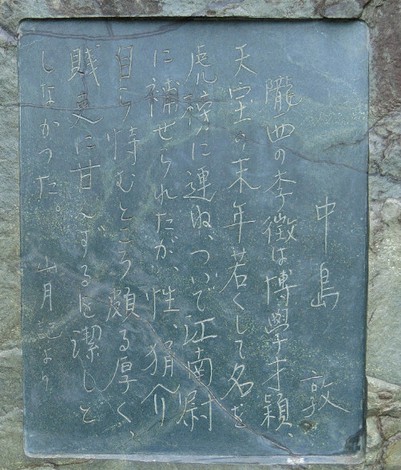 中島 敦
隴西の李徴は博學才穎、
天宝の末年若くして名を
虎榜に連ね、ついで江南尉
に補せられたが、性、狷介
自ら恃むところ頗る厚く、
賤吏に甘んずるを潔しと
しなかつた。 山月記より